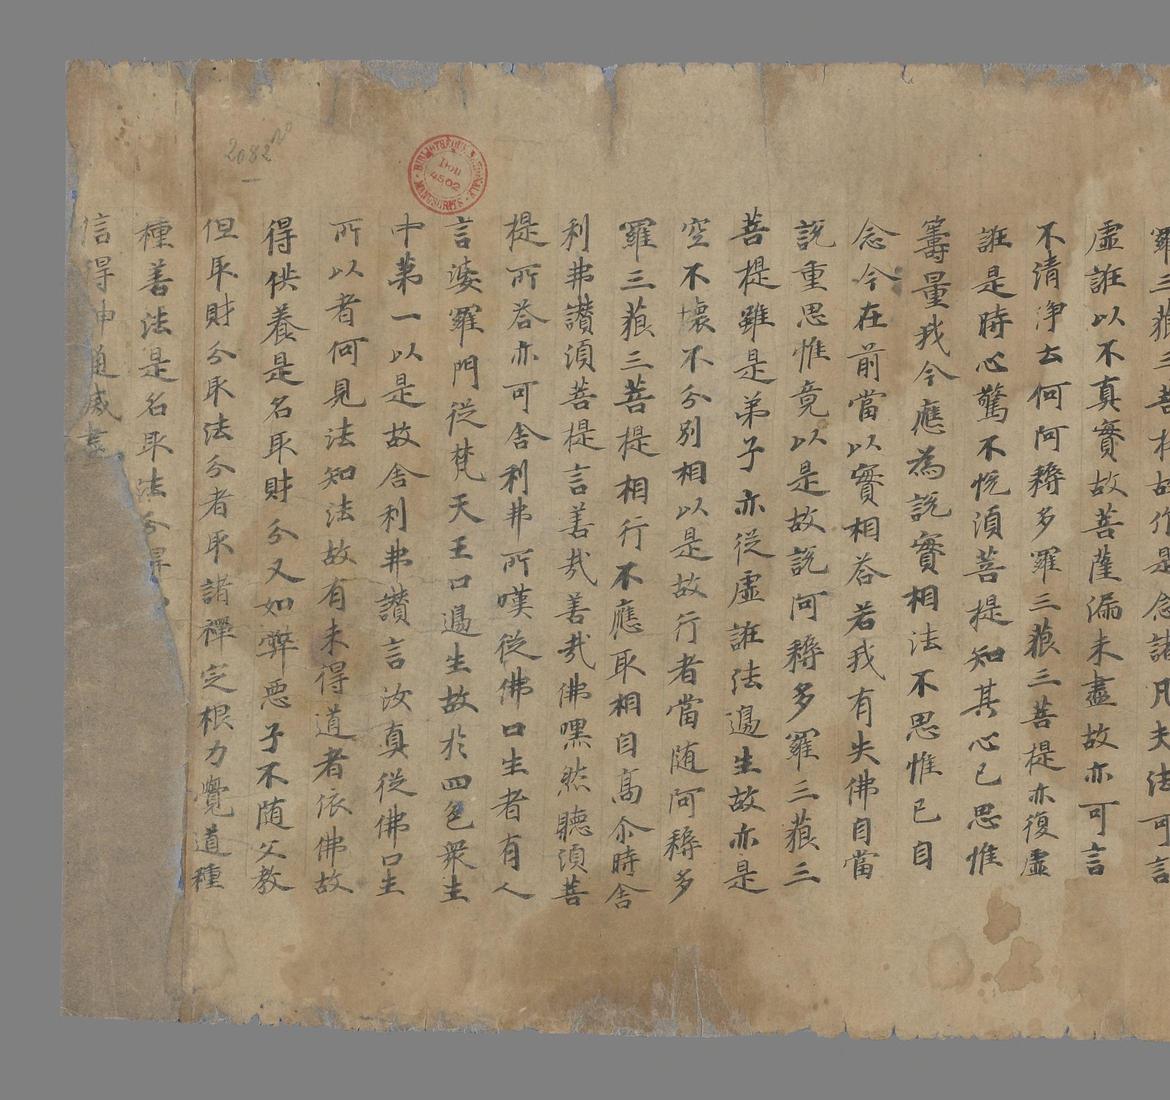 羅三藐三菩提故作是念諸凡夫法可言
虛誑以不真實故菩薩漏未盡故亦可言
不清淨云何阿耨多羅三藐三菩提亦復虛
誑是時心驚不悅湏菩提知其心已思惟
籌量我今應為說實相法不思惟已自
念今在前當以實相荅若我有失佛自當
說重思惟竟以是故說阿耨多羅三藐三
菩提雖是弟子亦從虛誑法邊生故亦是
空不壞不分別相以是故行者當随阿耨多
羅三藐三菩提相行不應取相自高尒時舍
利弗讚湏菩提言善㢤善㢤佛嘿然聽湏菩
提所荅亦可舍利弗所嘆從佛口生者有人
言婆羅門從梵天王口邊生故於四色衆生
中苐一以是故舍利弗讚言汝真從佛口生
所以者何見法知法故有未得道者依佛故
得供養是名取財分又如弊惡子不随父教
但取財分取法分者取諸禪定根力覺道種
種善法是名取法分得
信得神通威
BIBLIOTHÈQUE NATIONALE MANUSCRITS
Don
4502
2082